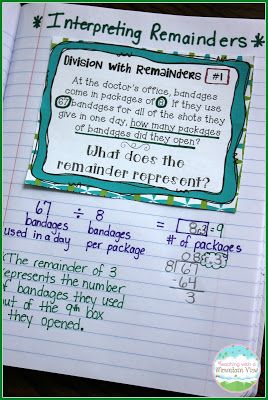 *Interpreting Remainders*
Division with Remainders #1
At the doctor's office, bandages
come in packages of 8. If they use
67 bandages for all of the shots they
give in one day, how many packages
of bandages did they open?
What does the
remainder represent?
67 ÷ 8 = 8 r3 = 9
bandages bandages # of packages
used in a day per package
08 r3
8)67
-64
3
The remainder of 3
represents the number
of bandages they used
out of the 9th box
they opened.
Teaching with a
Mountain View